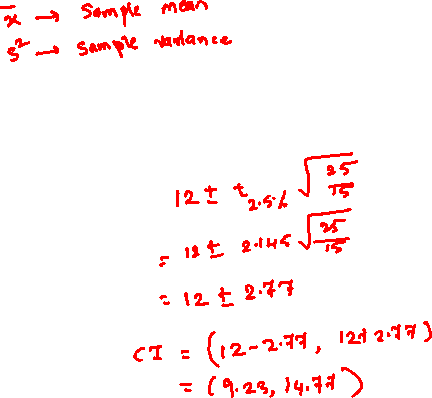 x̄ → Sample mean
s² → Sample variance
12 ± t₂.₅% √(25/15)
= 12 ± 2.145 √(25/15)
= 12 ± 2.77
CI = (12-2.77, 12+2.77)
= (9.23, 14.77)